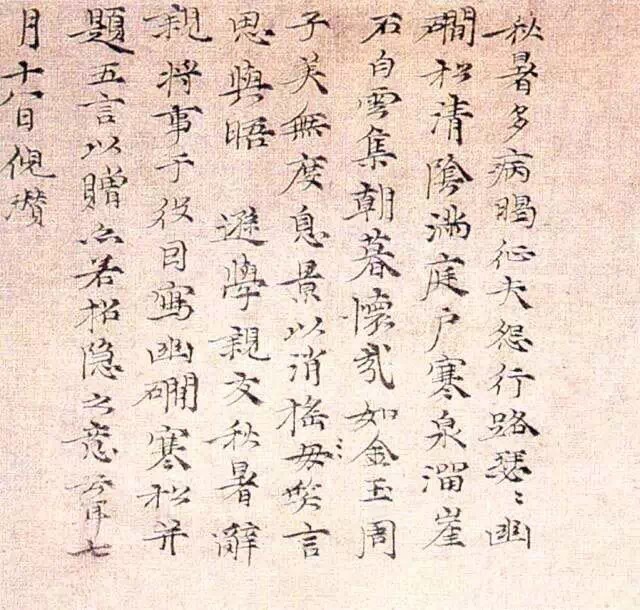 秋暑多病暍征夫怨行路瑟〻幽
磵松清陰滿庭戶寒泉溜崖
石白雲集朝暮懷哉如金玉周
子美無度息景以消搖毋𥬇言
思與晤 遜學親友秋暑辭
親將事于役因寫幽磵寒松并
題五言以贈亦若招隱之意云耳七
月十八日倪瓚